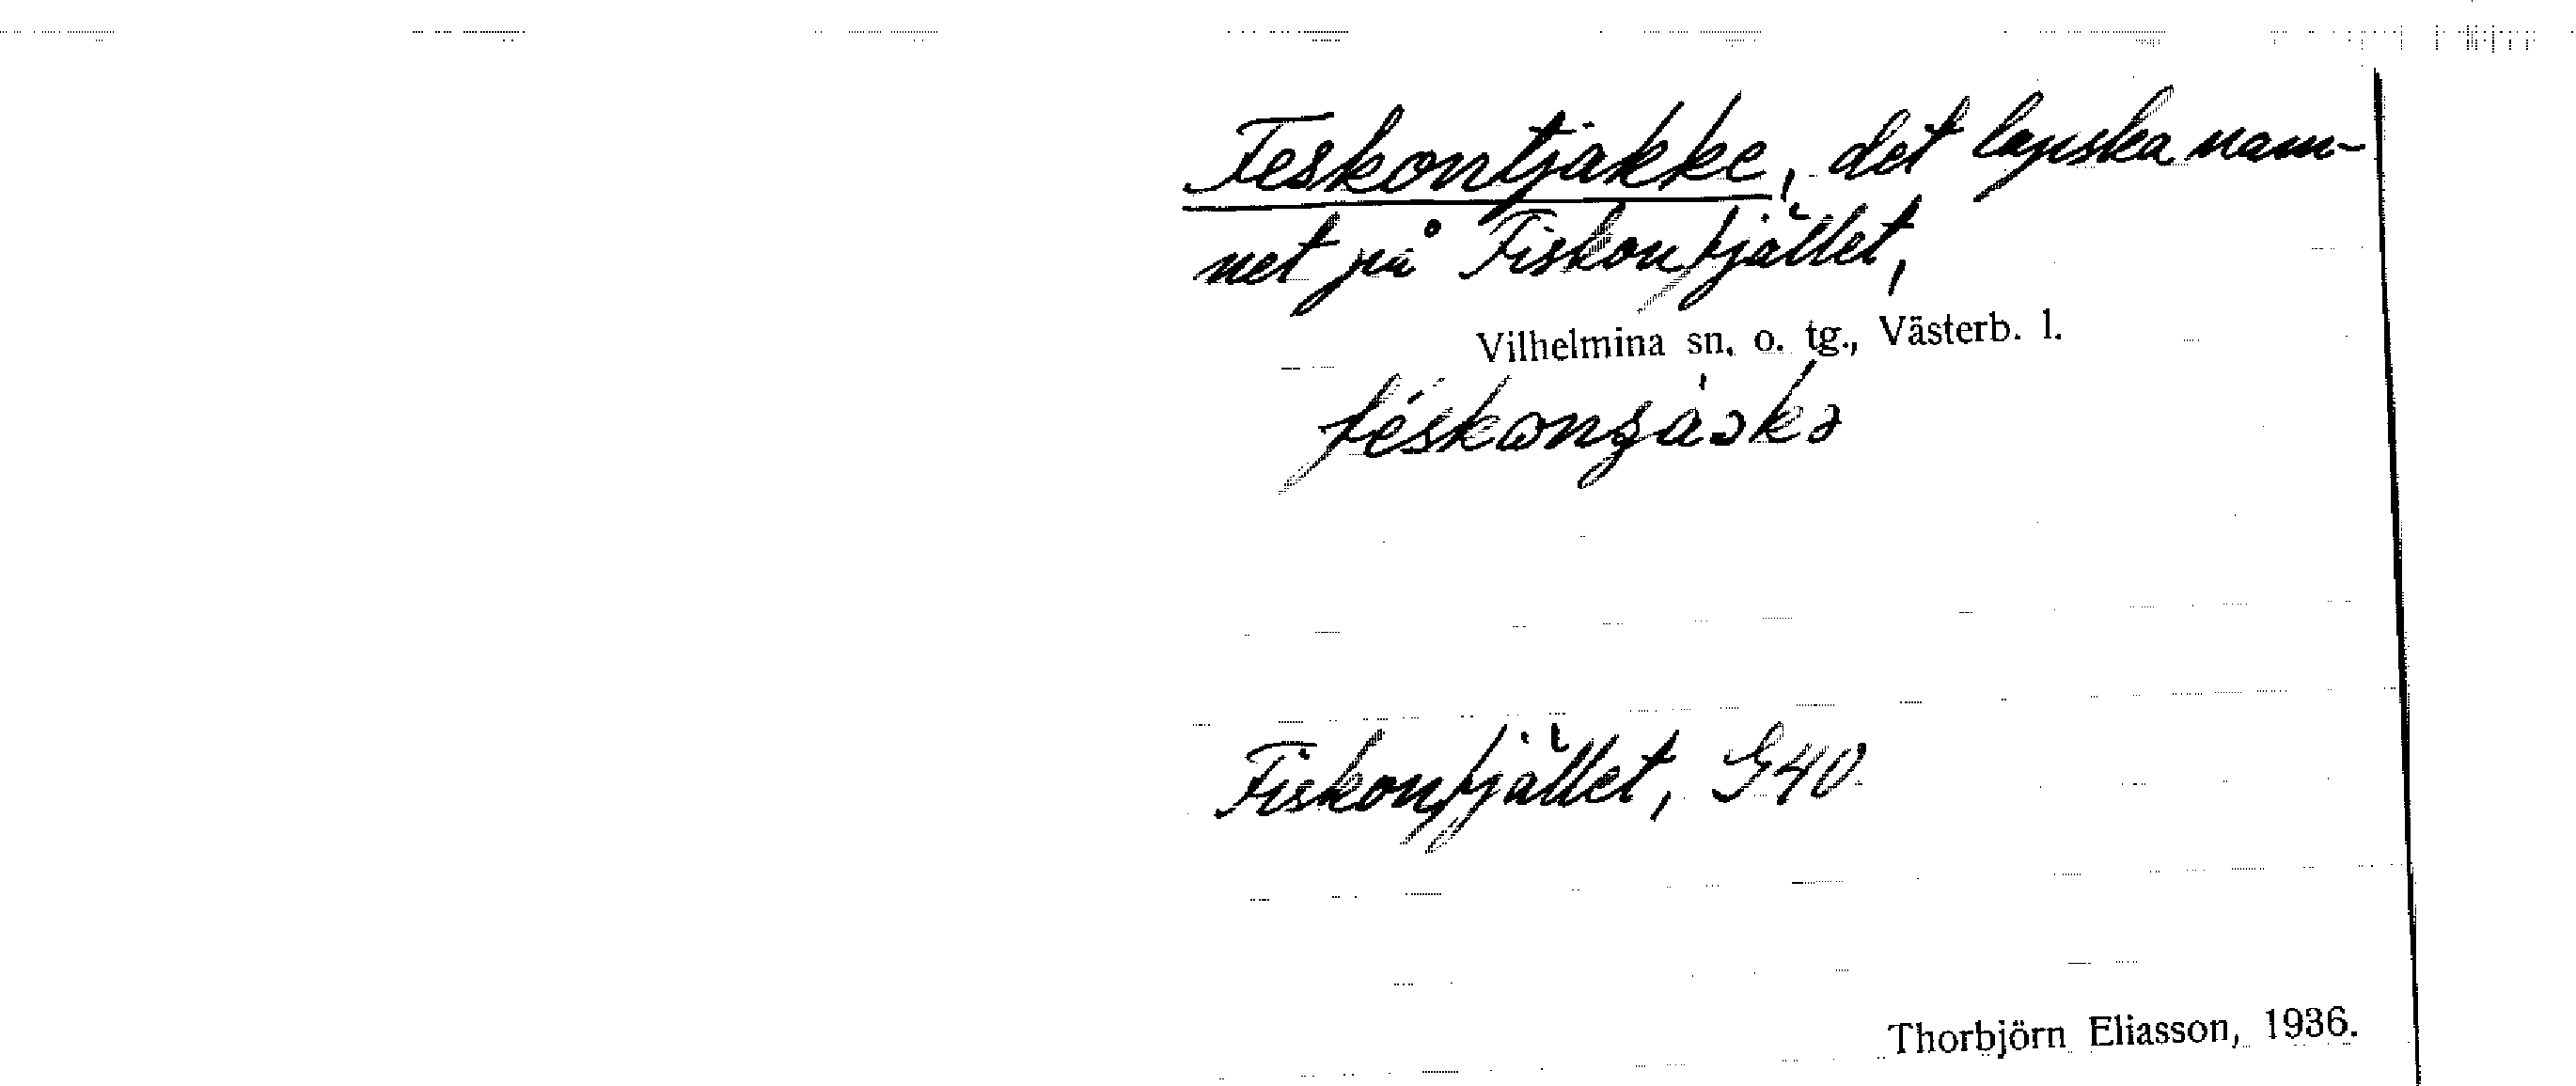 Feskontjakke, det lapska nam-
net på Fiskonfjället,
Vilhelmina sn. o. tg., Västerb. l.
Fiskonfjället, G40
Thorbjörn Eliasson, 1936.